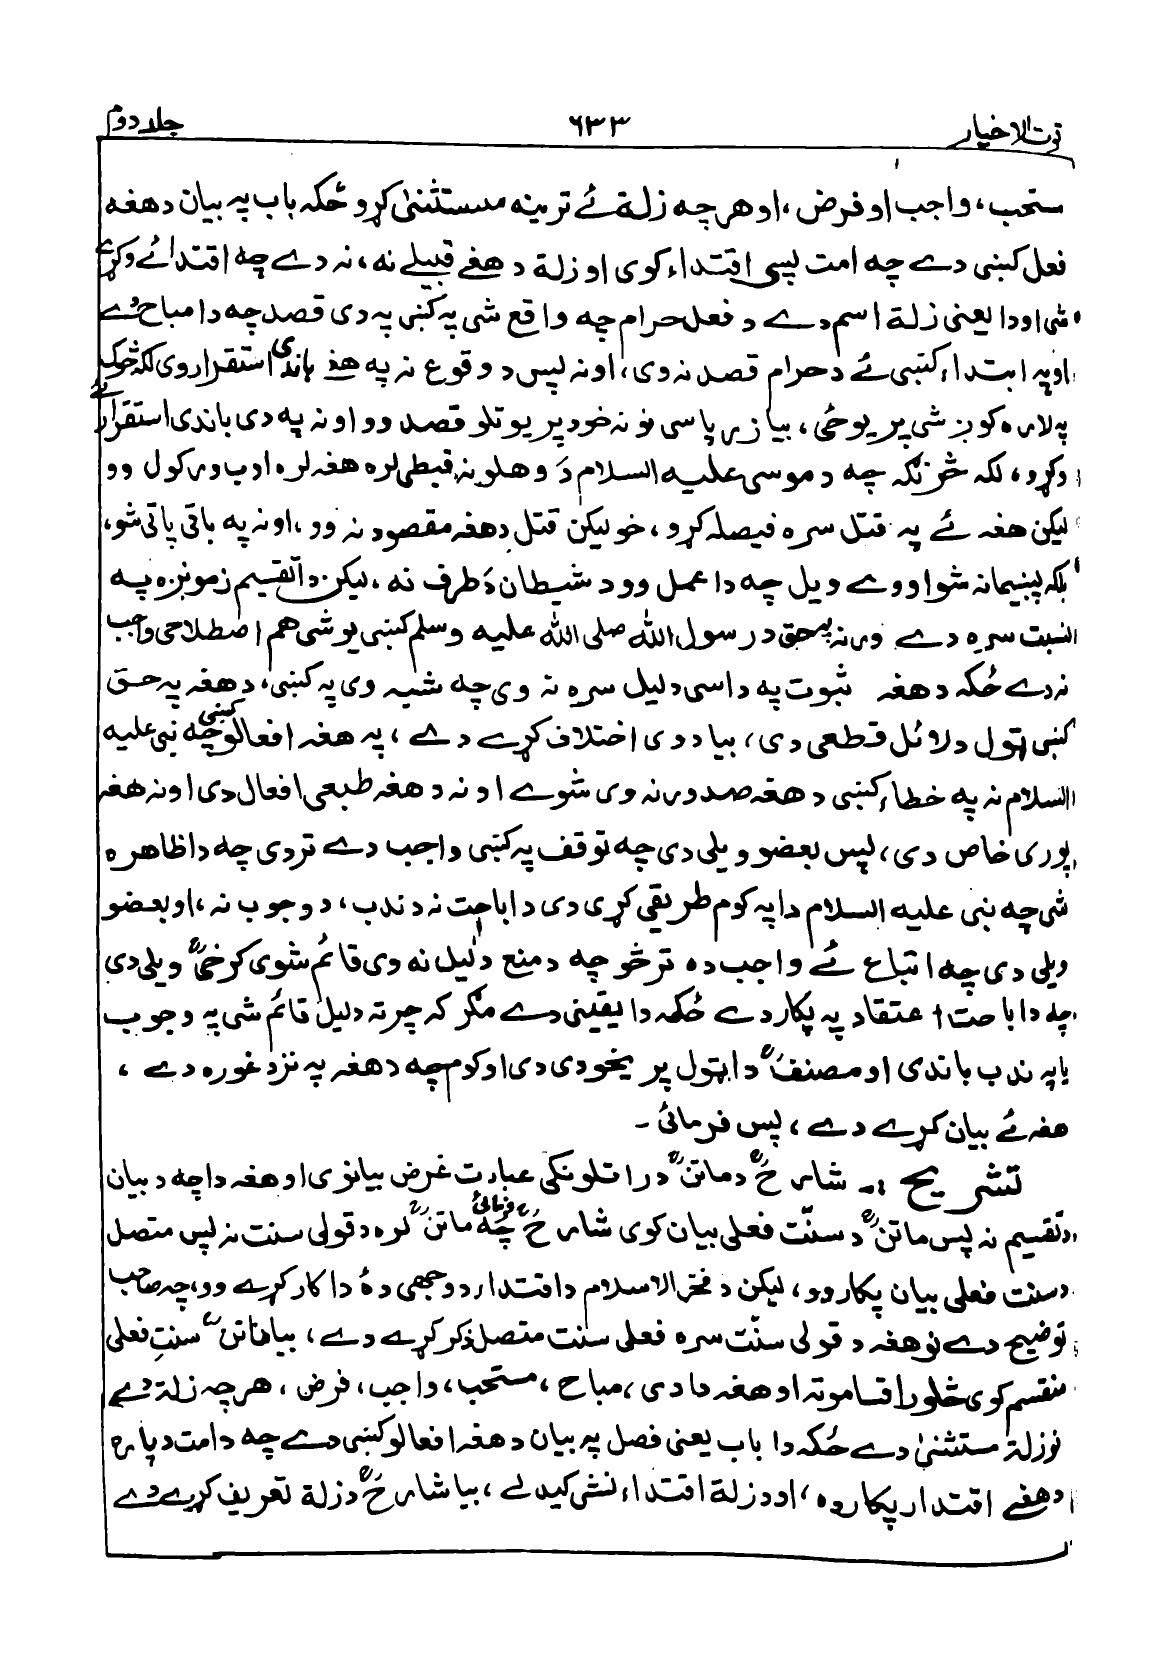 قوت الاخیار ۶۳۳ جلد دوم
مستحب، واجب او فرض، او هر چه زلة ئے ترینه مستثنیٰ کړو ځکه باب په بیان د هغه
فعل کښی دے چه امت پسی اقتداء کوی او زلة د هغے قبیلے نه، نه دے چه اقتدائے وکړے
شی او دا یعنی زلة اسم دے د فعل حرام چه واقع شی په کښی په دی قصد چه دا مباح دے
او په ابتداء کښی ئے د حرام قصد نه وی، او نه پس د وقوع نه په هغے باندی استقرار وی لکه څوک
په لاره کوز شی پریوځی، بیا زر پاسی نو نه خود پریوتلو قصد وو او نه په دی باندی استقرار ئے
وکړو، لکه څرنګه چه د موسی علیه السلام دَ وهلو نه قبطی لره هغه لره ادب ورکول وو
لیکن هغه ئے په قتل سره فیصله کړو، خو لیکن قتل د هغه مقصود نه وو، او نه په باقی پاتی شو،
بلکه پښیمانه شو او وے ویل چه دا عمل وو د شیطان دَ طرف نه، لیکن دا تقسیم زمونږه په
نسبت سره دے ورنه په حق د رسول الله صلی الله علیه وسلم کښی یو شی هم اصطلاحی واجب
نه دے ځکه د هغه ثبوت په داسی دلیل سره نه وی چه شبه وی په کښی، د هغه په حق
کښی ټول دلائل قطعی دی، بیا دوی اختلاف کړے دے، په هغه افعالو کښی چه نبی علیه
السلام نه په خطاء کښی د هغه صدور نه وی شوے او نه د هغه طبعی افعال دی او نه هغه
پوری خاص دی، پس بعضو ویلی دی چه توقف په کښی واجب دے تردی چه دا ظاهره
شی چه نبی علیه السلام دا په کوم طریقی کړی دی د اباحت نه د ندب، د وجوب نه، او بعضو
ویلی دی چه اتباع ئے واجب ده ترڅو چه د منع دلیل نه وی قائم شوی کرخیؒ ویلی دی
چه د اباحت اعتقاد په پکار دے ځکه دا یقینی دے مګر که چرته دلیل قائم شی په وجوب
یا په ندب باندی او مصنفؒ دا ټول پریخودی دی او کوم چه د هغه په نزد غوره دے،
هغه ئے بیان کړے دے، پس فرمائی۔
تشریح :۔ شارحؒ د ماتنؒ د راتلونکی عبارت غرض بیانوی او هغه دا چه د بیان
د تقسیم نه پس ماتنؒ د سنّت فعلی بیان کوی شارحؒ فرمائی چه ماتنؒ لره د قولی سنت نه پس متصل
د سنت فعلی بیان پکار وو، لیکن د فخر الاسلام د اقتدار د وجهی دهٔ دا کار کړے وو، چه صاحب
توضیح دے نو هغه د قولی سنّت سره فعلی سنت متصل ذکر کړے دے، بیا ماتنؒ سنتِ فعلی
منقسم کوی څلورو اقسامو ته او هغه دا دی، مباح، مستحب، واجب، فرض، هر چه زلة دے
نو زلة مستثنیٰ دے ځکه دا باب یعنی فصل په بیان د هغه افعالو کښی دے چه د امت دپاره
د هغے اقتدار پکار وه، او د زلة اقتداء نشی کیدلے، بیا شارحؒ د زلة تعریف کړے دے